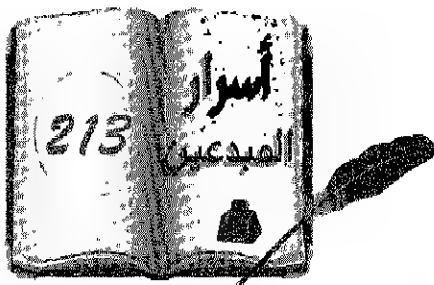 213
أسرار
المبدعين